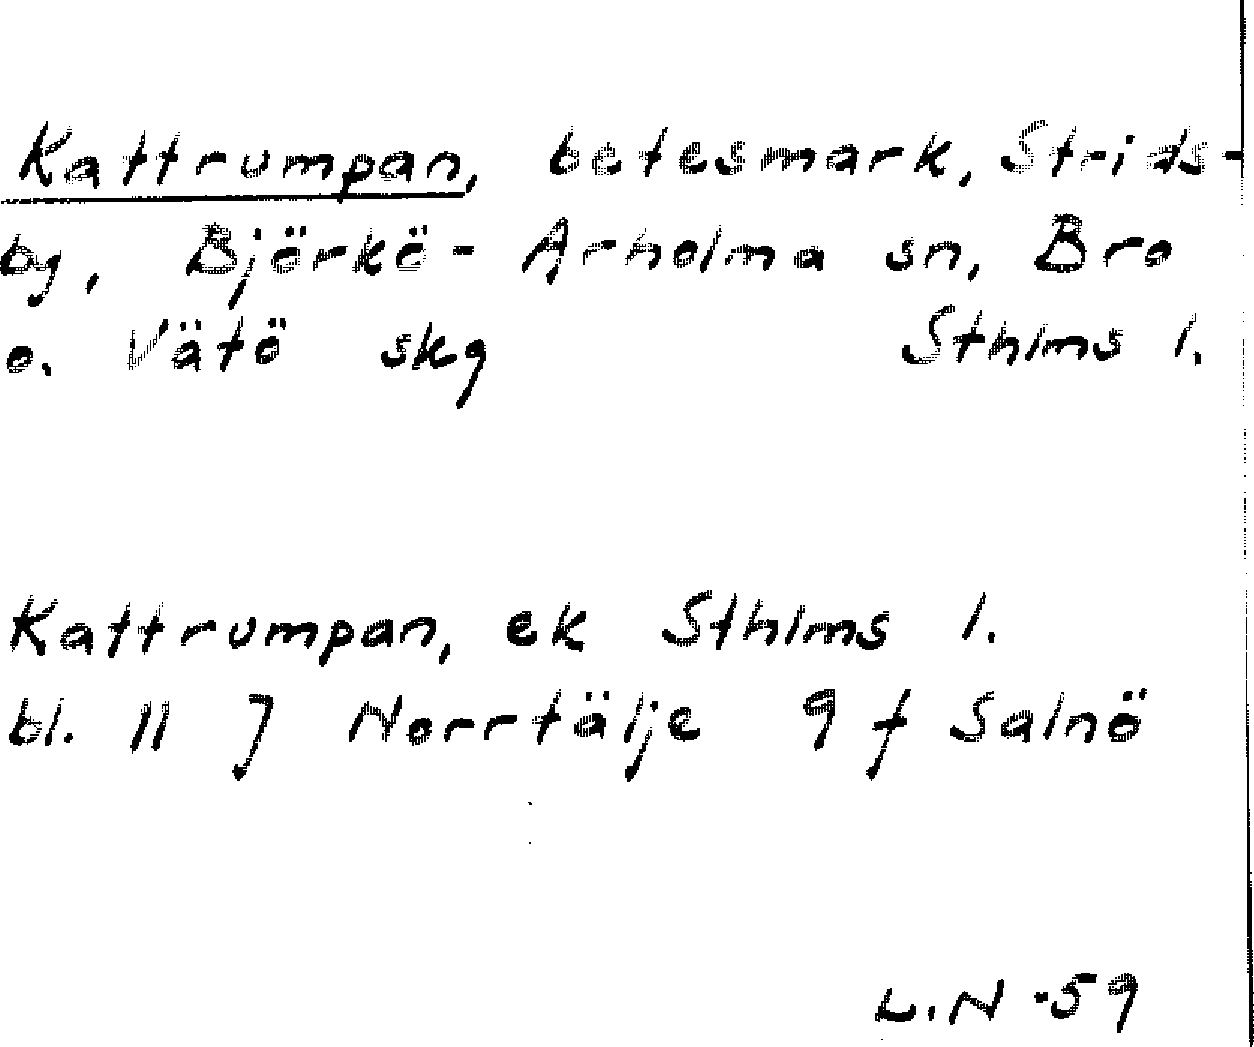 Kattrumpan, betesmark, Strids-
by, Björkö-Arholma sn, Bro
o. Vätö skg Sthlms l.
Kattrumpan, ek Sthlms l.
bl. 11 J Norrtälje 9 f Salnö
L.N -59